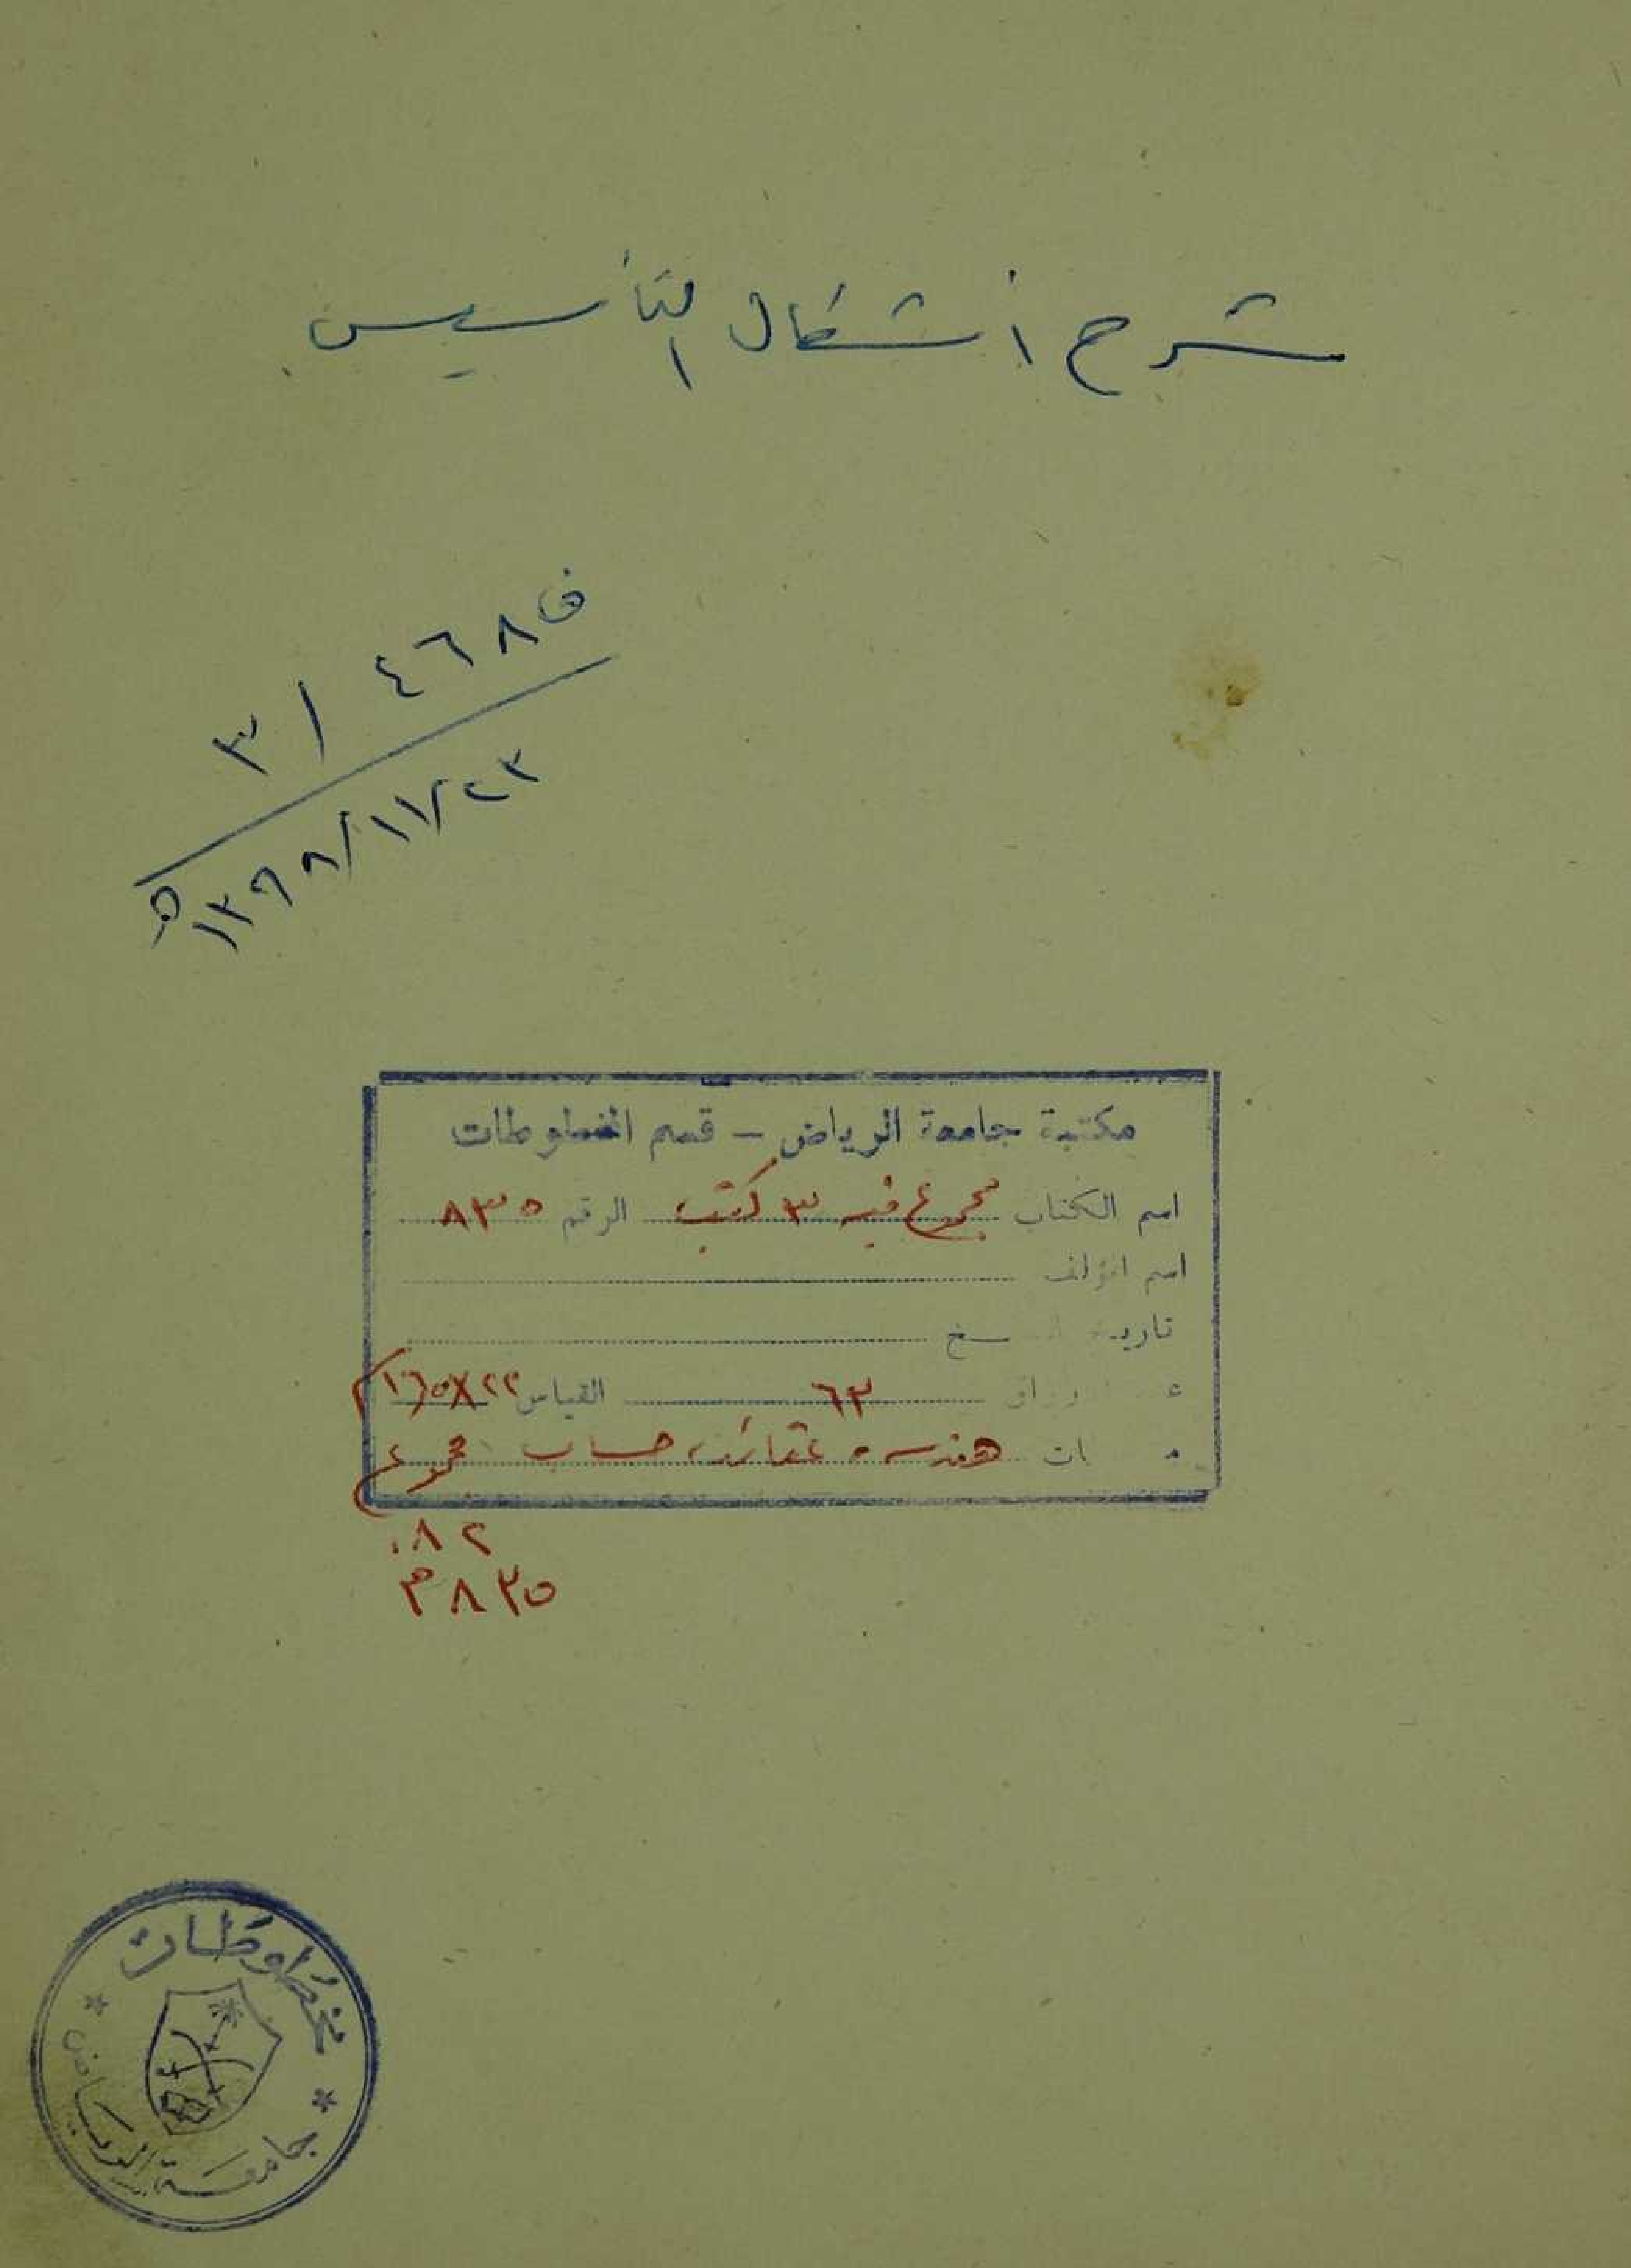 شرح أشكال التأسيس
ف ٤٦٨ / ٣
١٣٩٩/١١/٢٣ هـ
مكتبة جامعة الرياض – قسم المخطوطات
اسم الكتاب مجموع فيه ٣ كتب الرقم ٨٣٥
اسم المؤلف
تاريخ النسخ
٦٣ القياس ٢٢×١٦٫٥
هندسة، عقائد، حساب مجموع
٠٨٢
٨٣٥ م
مخطوطات
جامعة الرياض